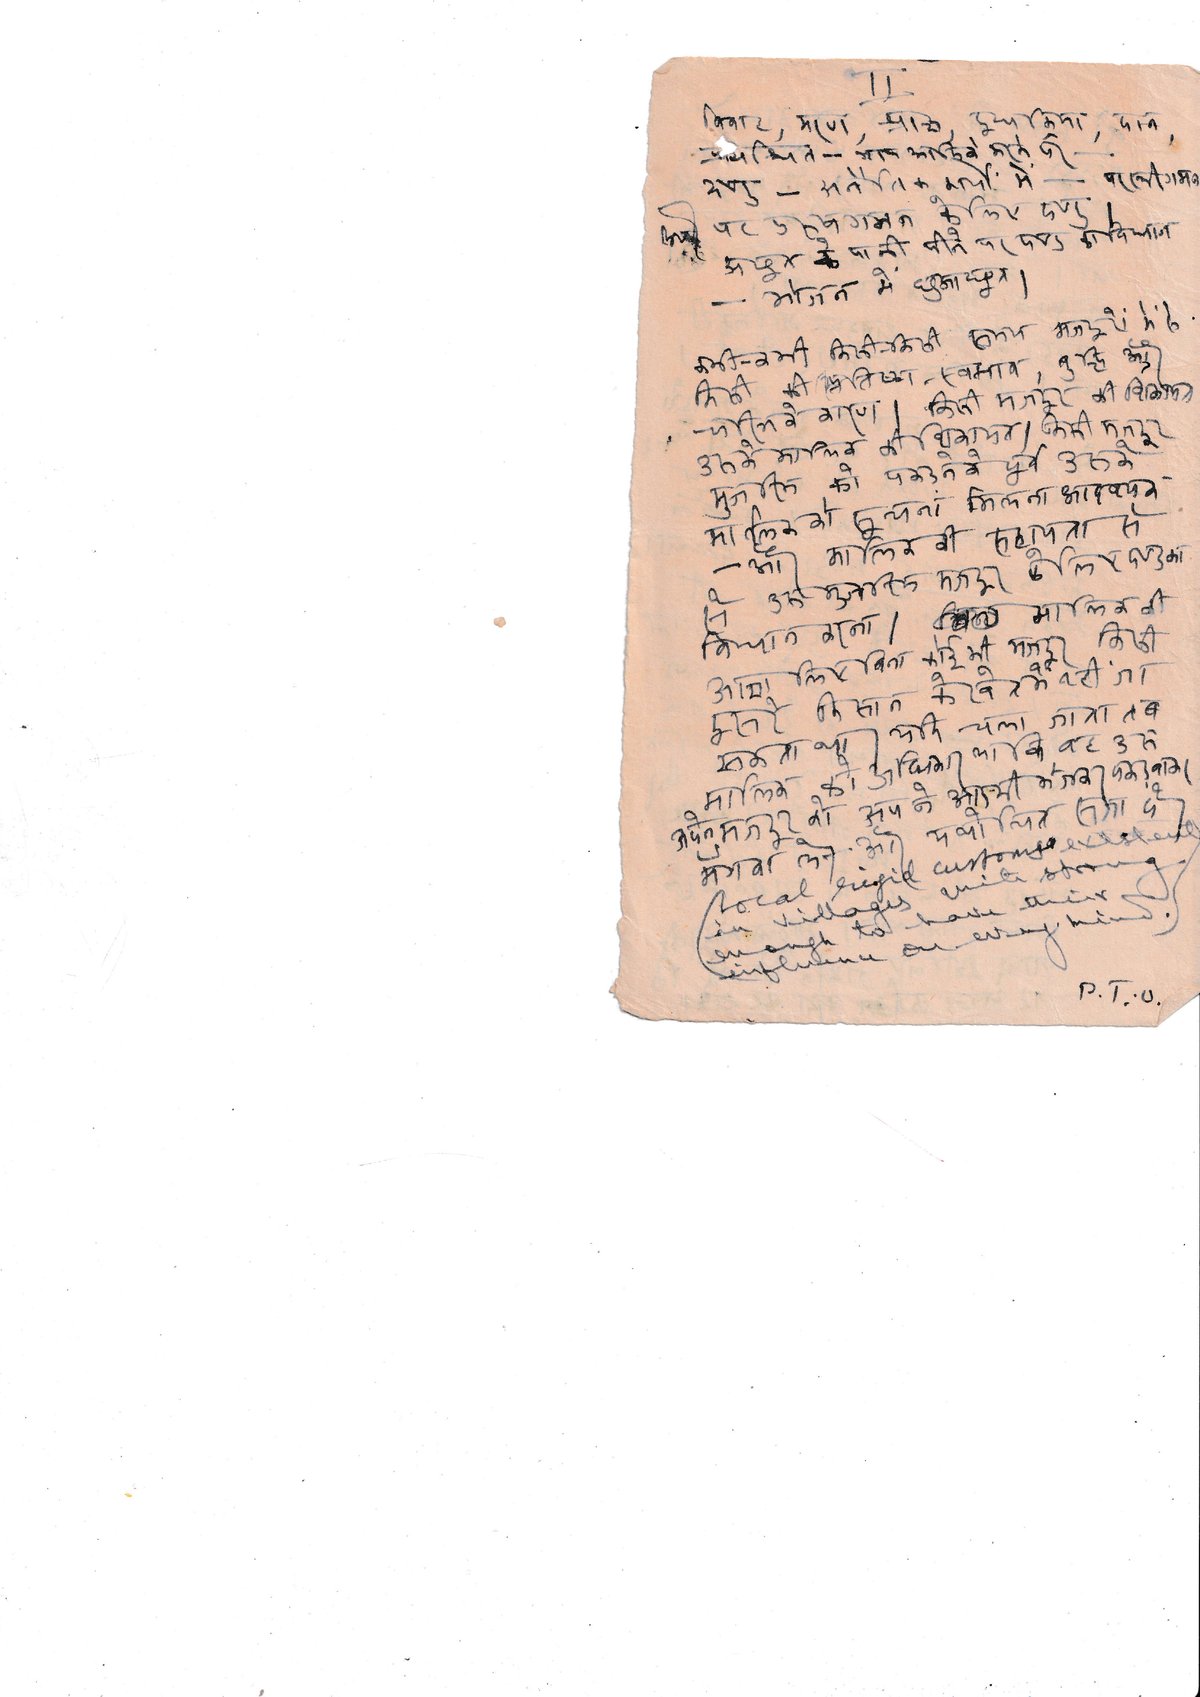 II
विवाह, मरण, श्राद्ध, दान,
प्रायश्चित — आदि के करने पर —
दण्ड — अनैतिक कार्यों में — परस्त्रीगमन
पर के लिए दण्ड।
अछूत के पानी पीने पर दण्ड का विधान
— भोजन में छुआछूत।
कभी-कभी किसी-किसी समय मजदूरों में से
किसी की स्वभाव, बुद्धि और
के कारण। किसी मजदूर की शिकायत
उसके मालिक की शिकायत। किसी मजदूर
मुजरिम को पकड़ने के पूर्व उसके
मालिक को सूचना मिलना आवश्यक
— और मालिक की सहायता से
ही उस मुजरिम मजदूर के लिए दण्ड का
विधान करना। मालिक की
आज्ञा लिए बिना कोई भी मजदूर किसी
दूसरे किसान के खेत में नहीं जा
सकता था। यदि चला जाता तब
मालिक को अधिकार था कि वह उस
मजदूर को अपने आदमी भेजकर पकड़वाकर
मँगवा ले और यथोचित सजा दे।
(Local rigid customs existent
in villages quite strong
enough to have their
influence on every mind.)
P.T.O.